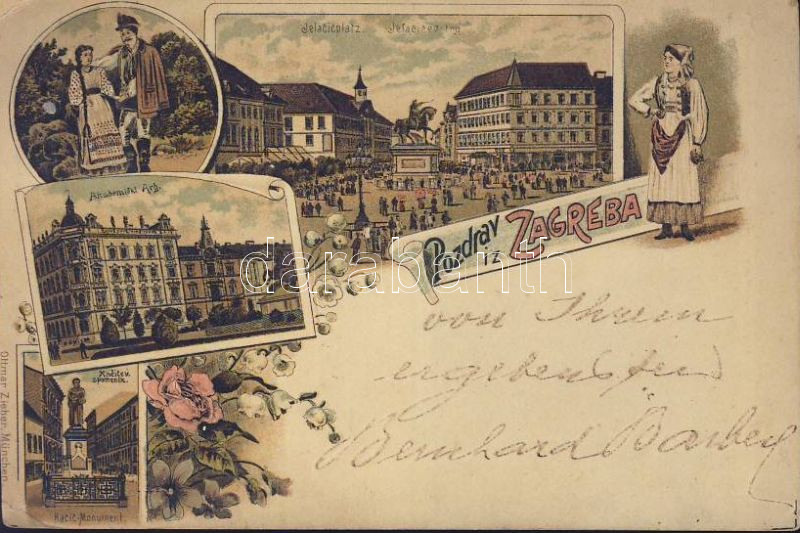 Jelačićplatz. Jelačićev trg
Akademički trg.
Pozdrav
iz ZAGREBA
Kačićev
spomenik.
Kačić-Monument.
Ottmar Zieher, München
darabanth
von Ihrem
ergebensten
Bernhard